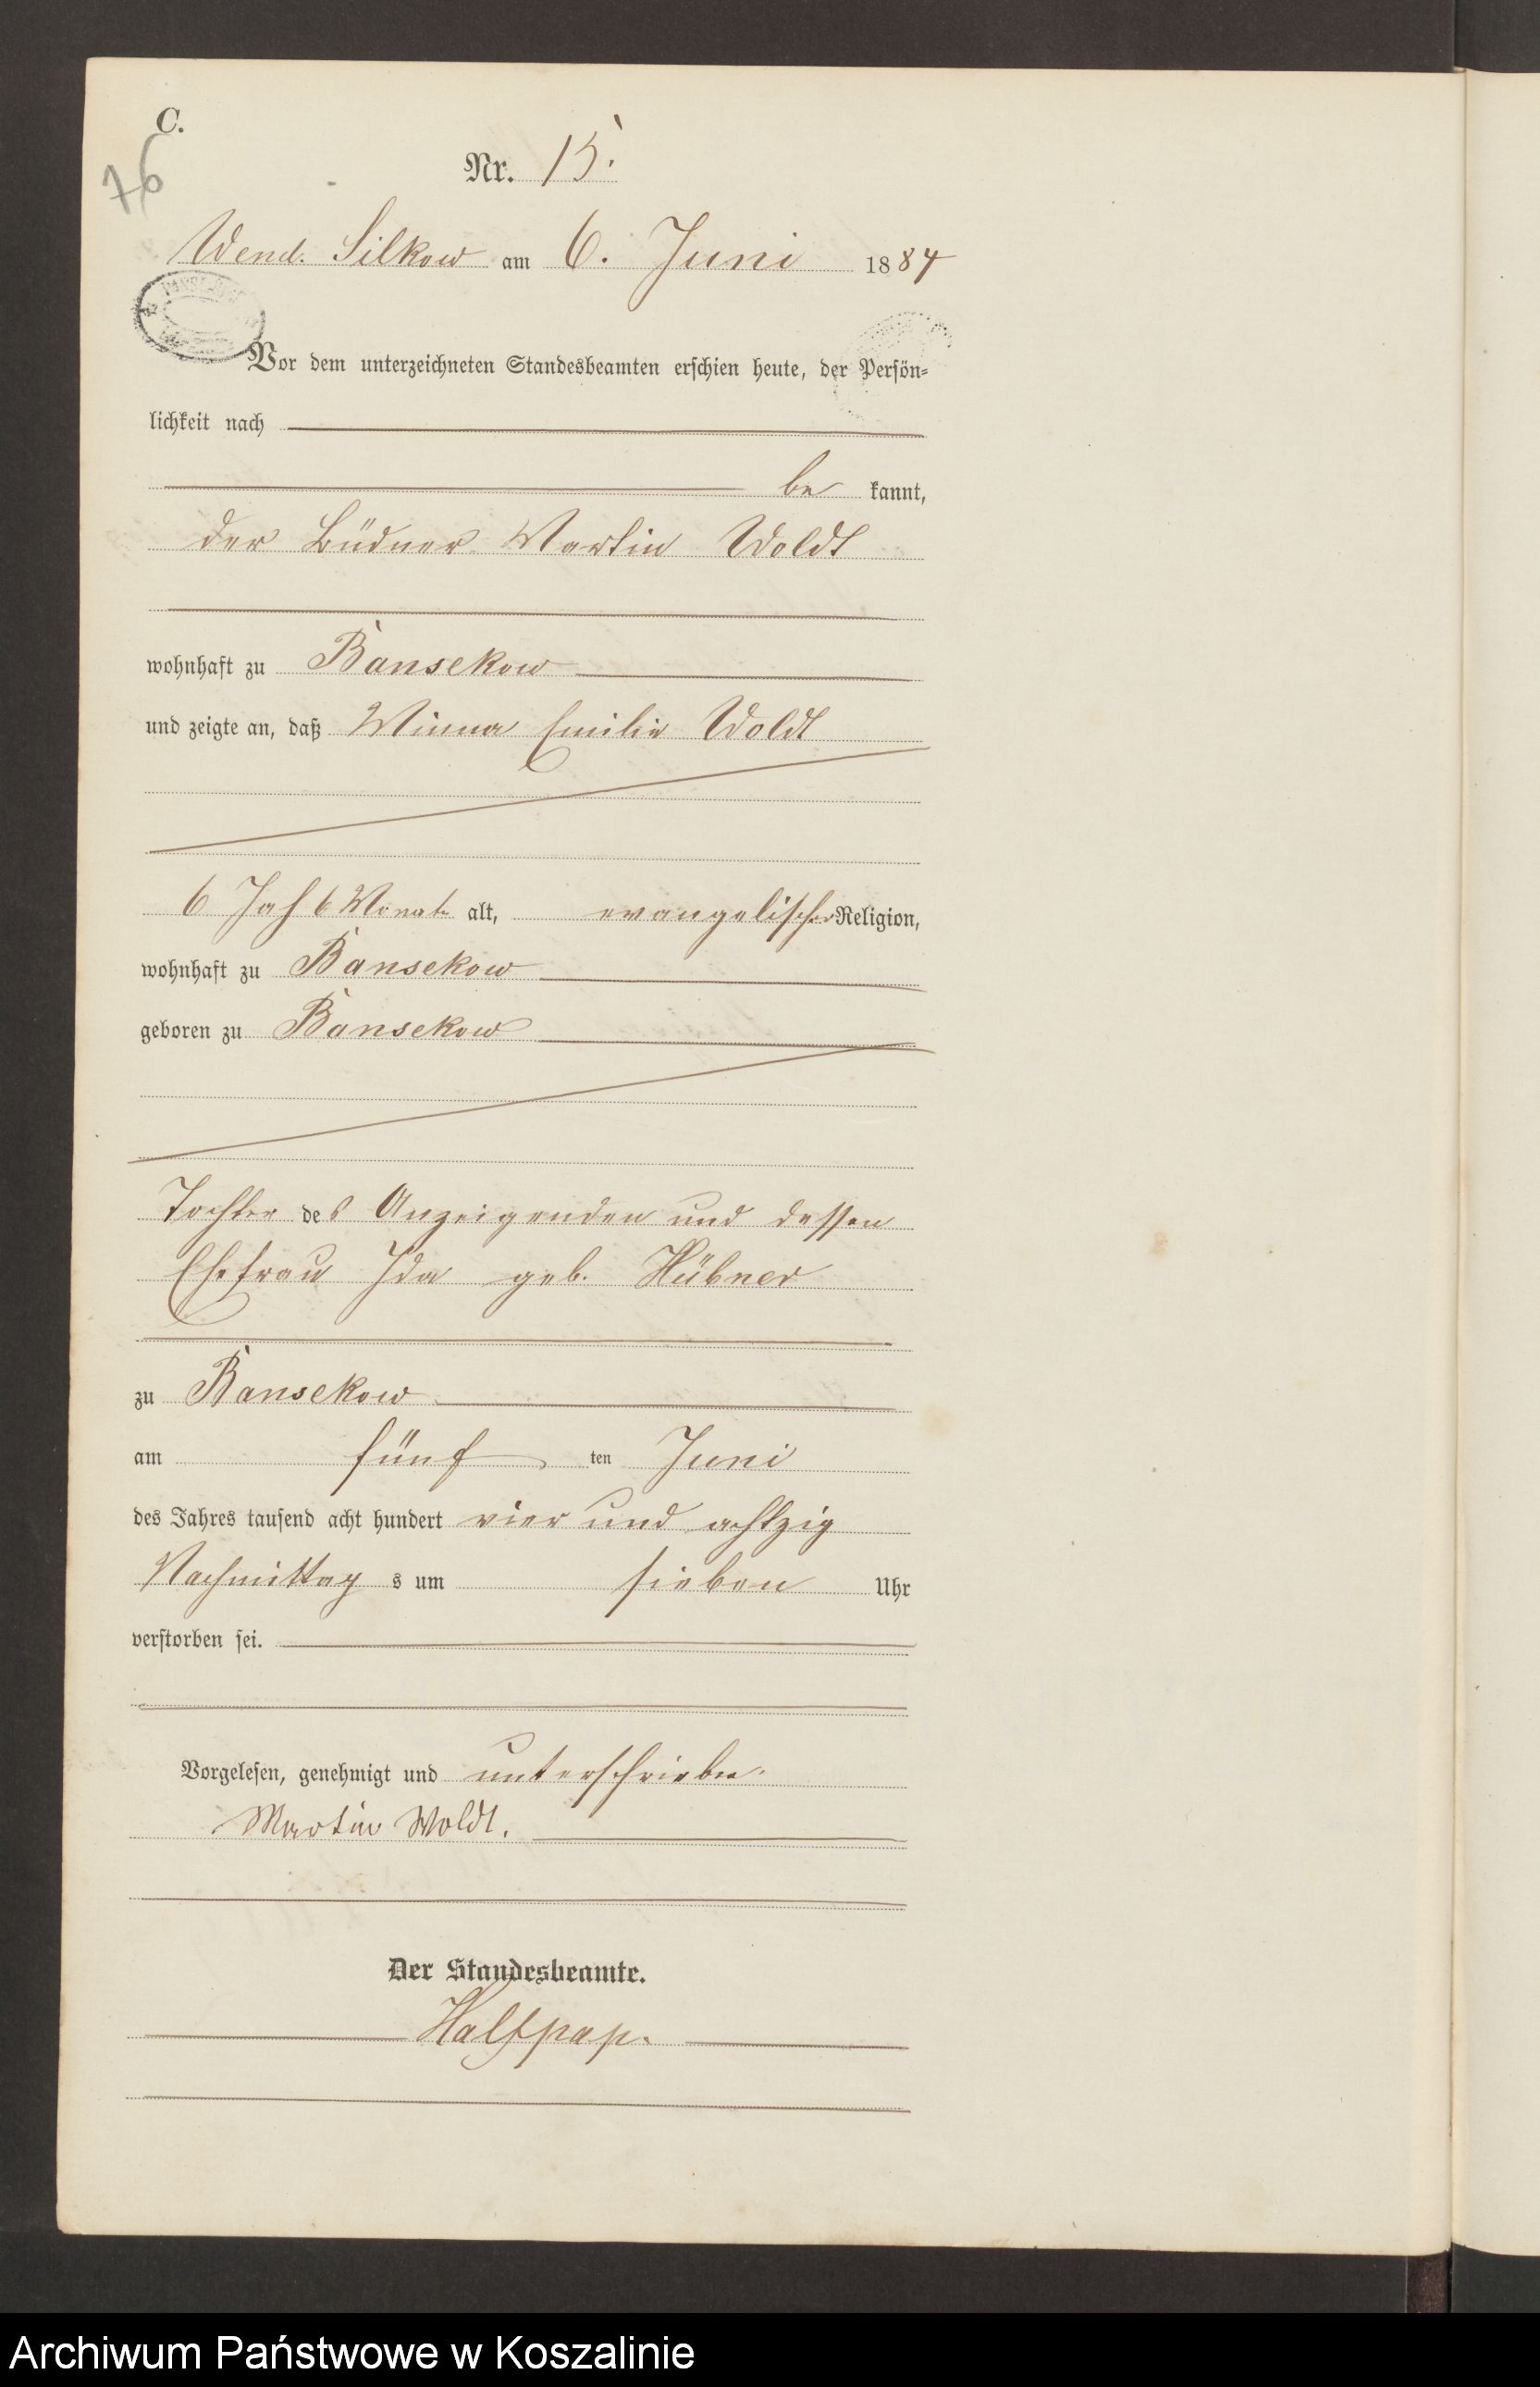 C.
76
Nr. 15.
Wend. Silkow am 6. Juni 1884
Vor dem unterzeichneten Standesbeamten erschien heute, der Persön-
lichkeit nach
be kannt,
der Büdner Martin Woldt
wohnhaft zu Bansekow
und zeigte an, daß Minna Emilie Woldt
6 Jah 6 Monate alt, evangelischer Religion,
wohnhaft zu Bansekow
geboren zu Bansekow
Tochter des Anzeigenden und dessen
Ehefrau Ida geb. Hübner
zu Bansekow
am fünf ten Juni
des Jahres tausend acht hundert vier und achtzig
Nachmittag s um sieben Uhr
verstorben sei.
Vorgelesen, genehmigt und unterschrieben.
Martin Woldt.
Der Standesbeamte.
Halfpap.
Archiwum Państwowe w Koszalinie